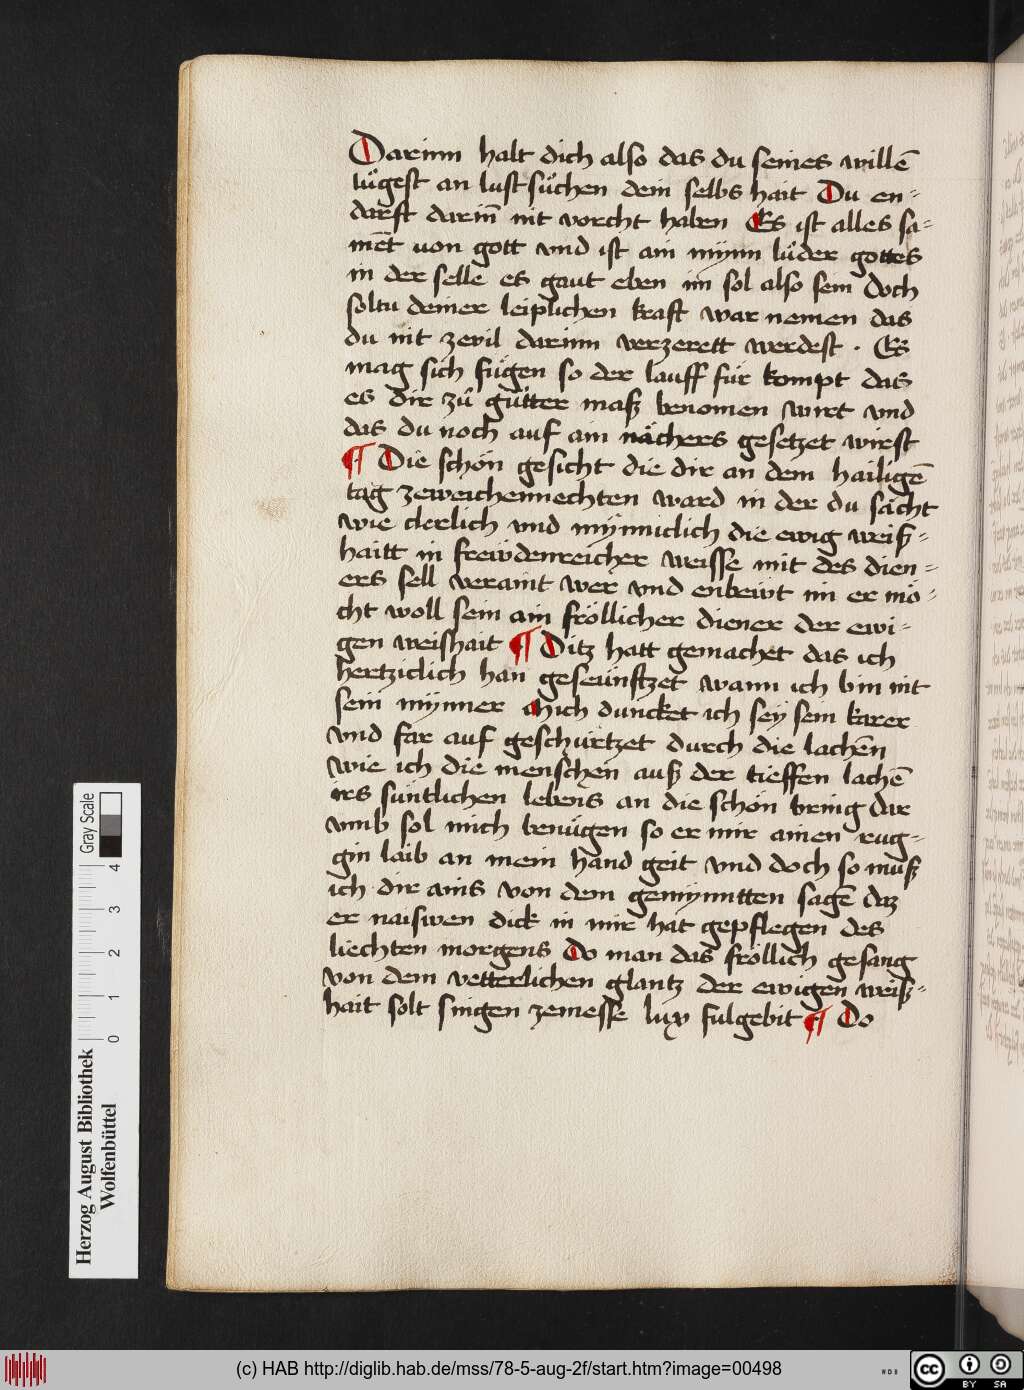 Darinn halt dich also das du seines willē
lůgest an lust sůchen dein selbs hait Du en-
darft darin̄ nit vorcht haben Es ist alles sa-
mēt von gott vnd ist ain mynn lůder gottes
in der selle es gaut eben im sol also sein Doch
soltu deiner leiplichen kraft war nemen das
du nit ze vil darinn verzerett werdest . Es
mag sich fůgen so der lauff für kompt das
es dir zů gůtter masz benomen wirt vnd
das du noch auf ain nächers gesetzet wirst
¶ Die schön gesicht die dir an dem hailigē
tag ze weichennechten ward in der du sächt
wie clerlich vnd mynniclich die ewig weisz-
haitt in freiwdenreicher weisse mit des dien-
ers sell veraint wer vnd enbewt im er mö-
cht woll sein ain fröllicher diener der ewi-
gen weishait ¶ Ditz hatt gemachet das ich
hertziclich han geseünftzet wann ich bin nit
sein mynner Mich duncket ich sey sein karer
vnd far auf geschürtzet durch die lachēn
wie ich die menschen ausz der tieffen lachē
irs süntlichen lebens an die schön bring dar
vmb sol mich benügen so er mir ainen rug-
gin laib an mein hand geit vnd doch so musz
ich dir ains von dem gemynntten sagē daz
er naiswen dick in mir hat gepflegen des
liechten morgens Do man das fröllich gesang
von dem vetterlichen glantz der ewigen weisz-
hait solt singen ze messe lux fulgebit ¶ Do
Herzog August Bibliothek
Wolfenbüttel
0 1 2 3 4
Gray Scale
(c) HAB http://diglib.hab.de/mss/78-5-aug-2f/start.htm?image=00498
WDB
cc
BY SA